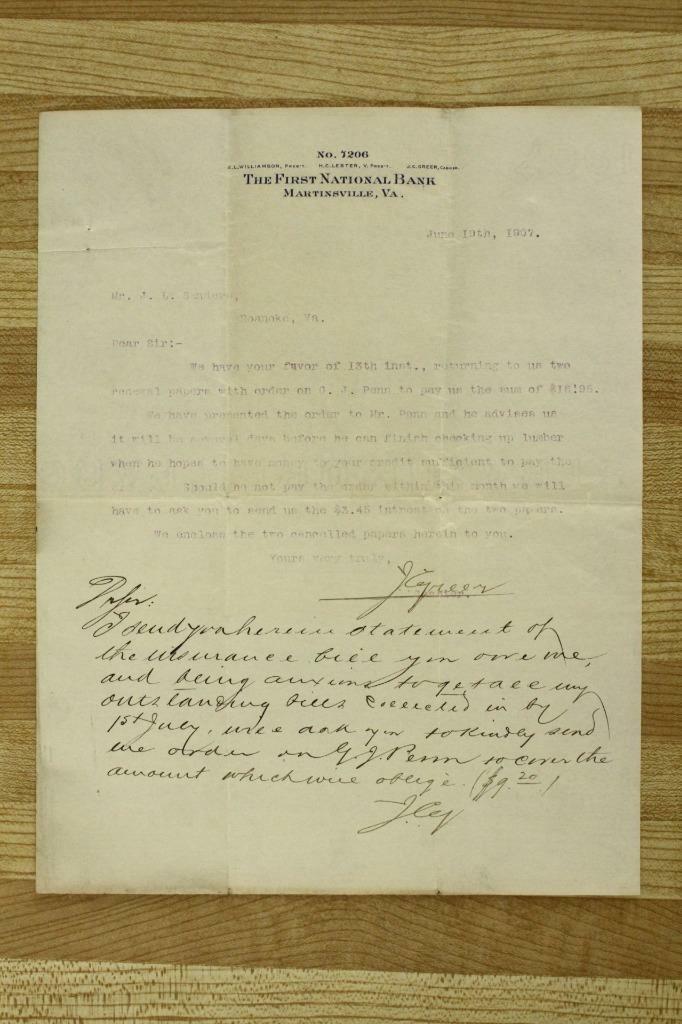 No. 7206
J.L.WILLIAMSON, Pres't. H.C.LESTER, V. Pres't. J.C.GREER, Cashier.
THE FIRST NATIONAL BANK
MARTINSVILLE, VA.
June 19th, 1907.
Mr. J. L.
Roanoke, Va.
Dear Sir:-
We have your favor of 13th inst., returning to us two
renewal papers with order on G. J. Penn to pay us the sum of
We have presented the order to Mr. Penn and he advises us
it will be several days before he can finish checking up lumber
when he hopes to have money to your credit sufficient to pay the
Should he not pay the order within this month we will
have to ask you to send us the $3.45 intrest on the two papers.
We enclose the two cancelled papers herein to you.
Yours very truly,
J C Greer
Dr Sir:
I send you herein statement of
the insurance bill you owe me,
and being anxious to get all my
outstanding bills collected in by
1st July, will ask you to kindly send
me order on G J Penn to cover the
amount which will oblige. ($9.20)
J.C.G